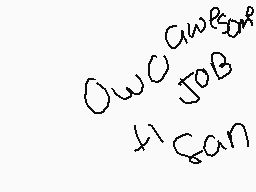 OwO awesome
JOB
+1 san